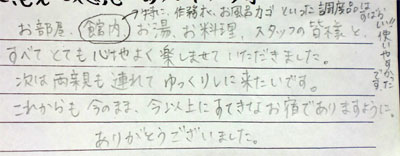 特に、作務衣、お風呂カゴといった調度品はすばらしい!! 使いやすかったです
お部屋、館内、お湯、お料理、スタッフの皆様と、
すべてとても心地よく楽しませていただきました。
次は両親も連れてゆっくりしに来たいです。
これからも今のまま、今以上にすてきなお宿でありますように。
ありがとうございました。